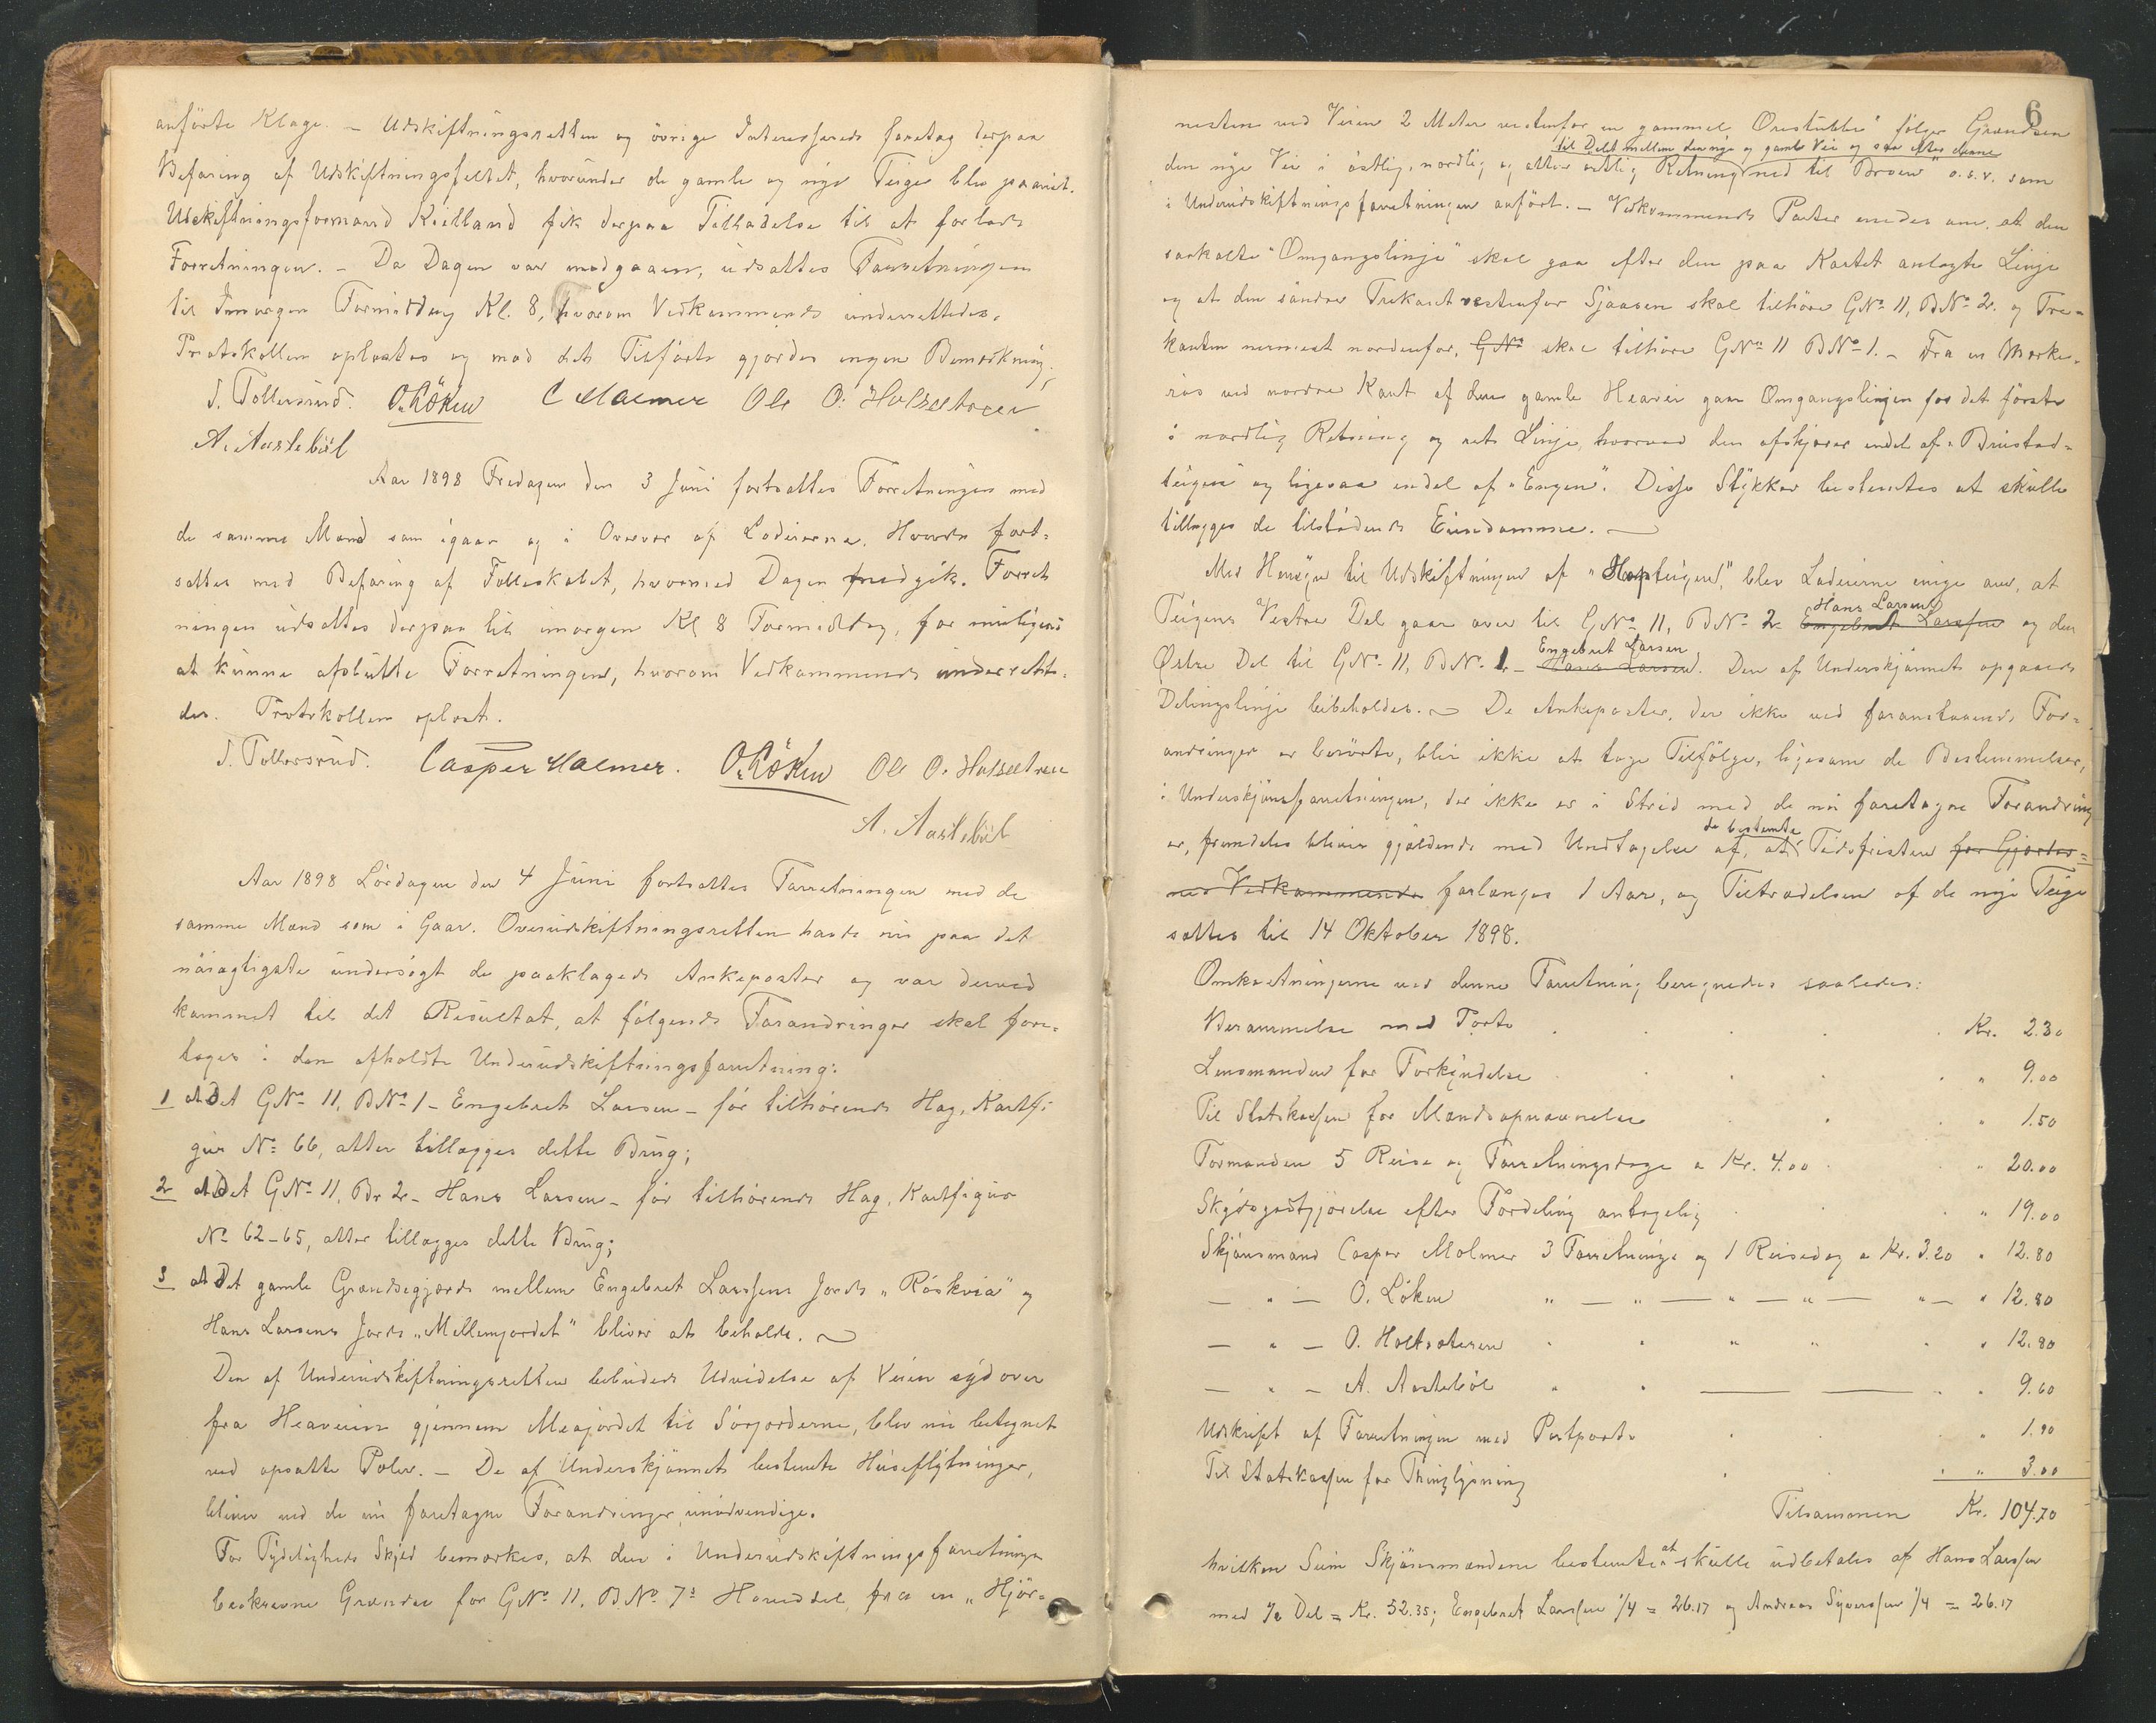 anförte Klage. – Udskiftningsretten og övrige Interesserede foretog derpaa
Befaring af Udskiftningsfeltet, hvorunder de gamle og nye Teige blev paavist.
Udskiftningsformand Kielland fik derpaa Tilladelse til at forlade
Forretningen. – Da Dagen var medgaaen, udsattes Forretningen
til Imorgen Formiddag Kl. 8, hvorom Vedkommende underrettedes.
Protokollen oplæstes og mod det Tilförte gjordes ingen Bemerkning.
J. Tollersrud. O. Löken C Malmer Ole O. Holtsetreen
A. Aastebøl
Aar 1898 Fredagen den 3 Juni fortsattes Forretningen med
de samme Mænd som igaar og i Overvær af Lodeierne. Hvorda fort-
sattes med Befaring af Fælleskabet, hvormed Dagen medgik. Forret-
ningen udsattes derpaa til imorgen Kl 8 Formiddag, for muligens
at kunne afslutte Forretningen, hvorom Vedkommende underrette-
des. Protokollen oplæst.
J. Tollersrud. Casper Malmer. O. Löken Ole O. Holtsetreen
A. Aastebøl
Aar 1898 Lördagen den 4 Juni fortsattes Forretningen med de
samme Mænd som i Gaar. Overudskiftningsretten havde nu paa det
nöiagtigste undersögt de paaklagede Ankeposter og var derved
kommet til det Resultat, at fölgende Forandringer skal fore-
tages i den afholdte Underudskiftningsforretning:
1 at Det GNo 11, BNo 1 – Engebret Larsen – för tilhörende Hag, Kartfi-
gur No 66, atter tillægges dette Brug;
2 at Det GNo 11, Br 2 – Hans Larsen – för tilhörende Hag, Kartfigur
No 62–65, atter tillægges dette Brug;
3 at Det gamle Grændsegjærde mellem Engebret Larssens Jorde „Röskvia" og
Hans Larsens Jorde „Mellemjordet" bliver at beholde.
Den af Underudskiftningsretten bebudede Udvidelse af Veien sydover
fra Heaveien gjennem Meajordet til Sörjorderne, blev nu betegnet
ved opsatte Pæler. – De af Underskjönnet bestemte Huseflytninger,
bliver ved de nu foretagne Forandringer unödvendige.
For Tydeligheds Skyld bemærkes, at den i Underudskiftningsforretningen
beskrevne Grændse for GNo 11, BNo 7s Hoveddel fra en „Hjör-
6
nesten ved Veien 2 Meter vestenfor en gammel Orestubbe" fölger Grændsen
til Delet mellem den nye og gamle Vei og saa efter denne
den nye Vei i östlig, nordlig og atter östlig Retning ned til Broen" o.s.v. som
i Underudskiftningsforretningen anfört. – Vedkommende Parter enedes om, at den
saakaldte "Omgangslinje" skal gaa efter den paa Kartet anlagte Linje
og at den söndre Trekant vestenfor Sjaaen skal tilhöre GNo 11, BNo 2. og Tre-
kanten nærmest nordenfor, GNo skal tilhöre GNo 11 BNo 1. – Fra en Merke-
rös ved nordre Kant af den gamle Heavei gaar Omgangslinjen for det förste
i nordlig Retning og ret Linje, hvorved den afskjærer endel af „Brustad-
teigen" og ligesaa endel af „Engen". Disse Stykker bestemtes at skulle
tillægges de tilstödende Eiendomme.
Med Hensyn til Udskiftningen af „Slaapteigen", blev Lodeierne enige om, at
Teigens Vestre Del gaar over til GNo 11, BNo 2 Engebret Larssen Hans Larsen og den
Østre Del til GNo 11, BNo 1 – Hans Larsen Engebret Larsen. Den af Underskjönnet opgaaede
Delingslinje beibeholdes. De Ankeposter, der ikke ved foranstaaende For-
andringer er berörte, blir ikke at tage Tilfölge, ligesom de Bestemmelser,
i Underskjönsforretningen, der ikke er i Strid med de nu foretagne Forandring-
er, fremdeles bliver gjældende med Undtagelse af, at de bestemte Tidsfrister for Gjærder-
nes Vedkommende forlænges 1 Aar, og Tiltrædelsen af de nye Teige
sættes til 14 Oktober 1898.
Omkostningerne ved denne Forretning beregnedes saaledes:
Berammelse med Porto Kr. 2.30
Lensmanden for Forkyndelse " 9.00
Til Statskassen for Mændsopnævnelse " 1.50
Formanden 5 Reise og Forretningsdage a Kr. 4.00 " 20.00
Skydsgodtgjörelse efter Fordeling antagelig " 19.00
Skjönsmand Casper Malmer 3 Forretnings og 1 Reisedag a Kr. 3.20 " 12.80
— " — O. Löken " — " — " — " — " — " 12.80
— " — O. Holtsæteren " " " " " " 12.80
— " — A. Aastebøl " " — — " 9.60
Udskrift af Forretningen med Postporto " 1.90
Til Statskassen for Thinglysning " 3.00
Tilsammen Kr. 104.70
hvilken Sum Skjönsmændene bestemte at skulle udbetales af Hans Larssen
med ½ Del = Kr. 52.35; Engebret Larssen 1/4 = 26.17 og Andreas Syverssen 1/4 = 26.17